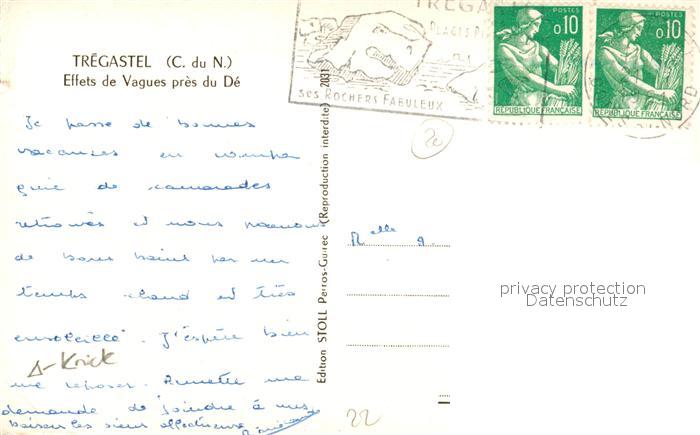 TRÉGASTEL (C. du N.)
Effets de Vagues près du Dé
TRÉGAS
PLAGES
SES ROCHERS FABULEUX
POSTES
0,10
RÉPUBLIQUE FRANÇAISE
POSTES
0,10
RÉPUBLIQUE FRANÇAISE
20
Je passe de bonnes
vacances en compa
gnie de camarades
retrouvés et nous prenons
de bons bains par un
temps chaud et très
ensoleillé. J'espère bien
me reposer. Annette me
demande de joindre à mes
baisers les siens affectueux
Δ-Knick
Edition STOLL Perros-Guirec (Reproduction interdite) 2031
Melle A.
privacy protection
Datenschutz
22